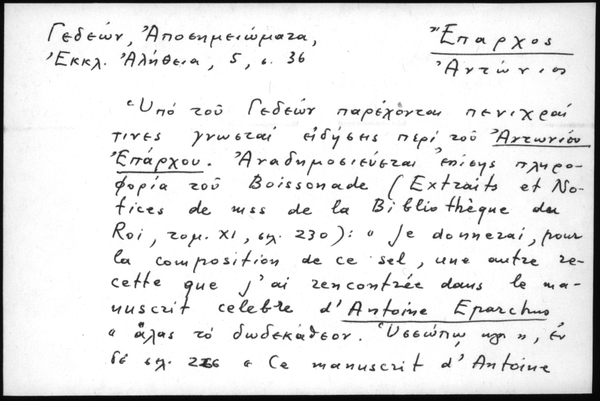 Γεδεών, Ἀποσημειώματα,
Ἐκκλ. Ἀλήθεια, 5, σ. 36
Ἔπαρχος
Ἀντώνιος
Ὑπό τοῦ Γεδεών παρέχονται πενιχραί
τινες γνωσταί εἰδήσεις περί τοῦ Ἀντωνίου
Ἐπάρχου. Ἀναδημοσιεύεται ἐπίσης πληρο-
φορία τοῦ Boissonade (Extraits et No-
tices de mss de la Bibliothèque du
Roi, τομ. XI, σελ. 230): « Je donnerai, pour
la composition de ce sel, une autre re-
cette que j'ai rencontrée dans le ma-
nuscrit celebre d'Antoine Eparchus
« ἅλας τό δωδεκάθεον. Ὑσσώπω, κλπ », ἐν
δέ σελ. 266 « Ce manuscrit d'Antoine